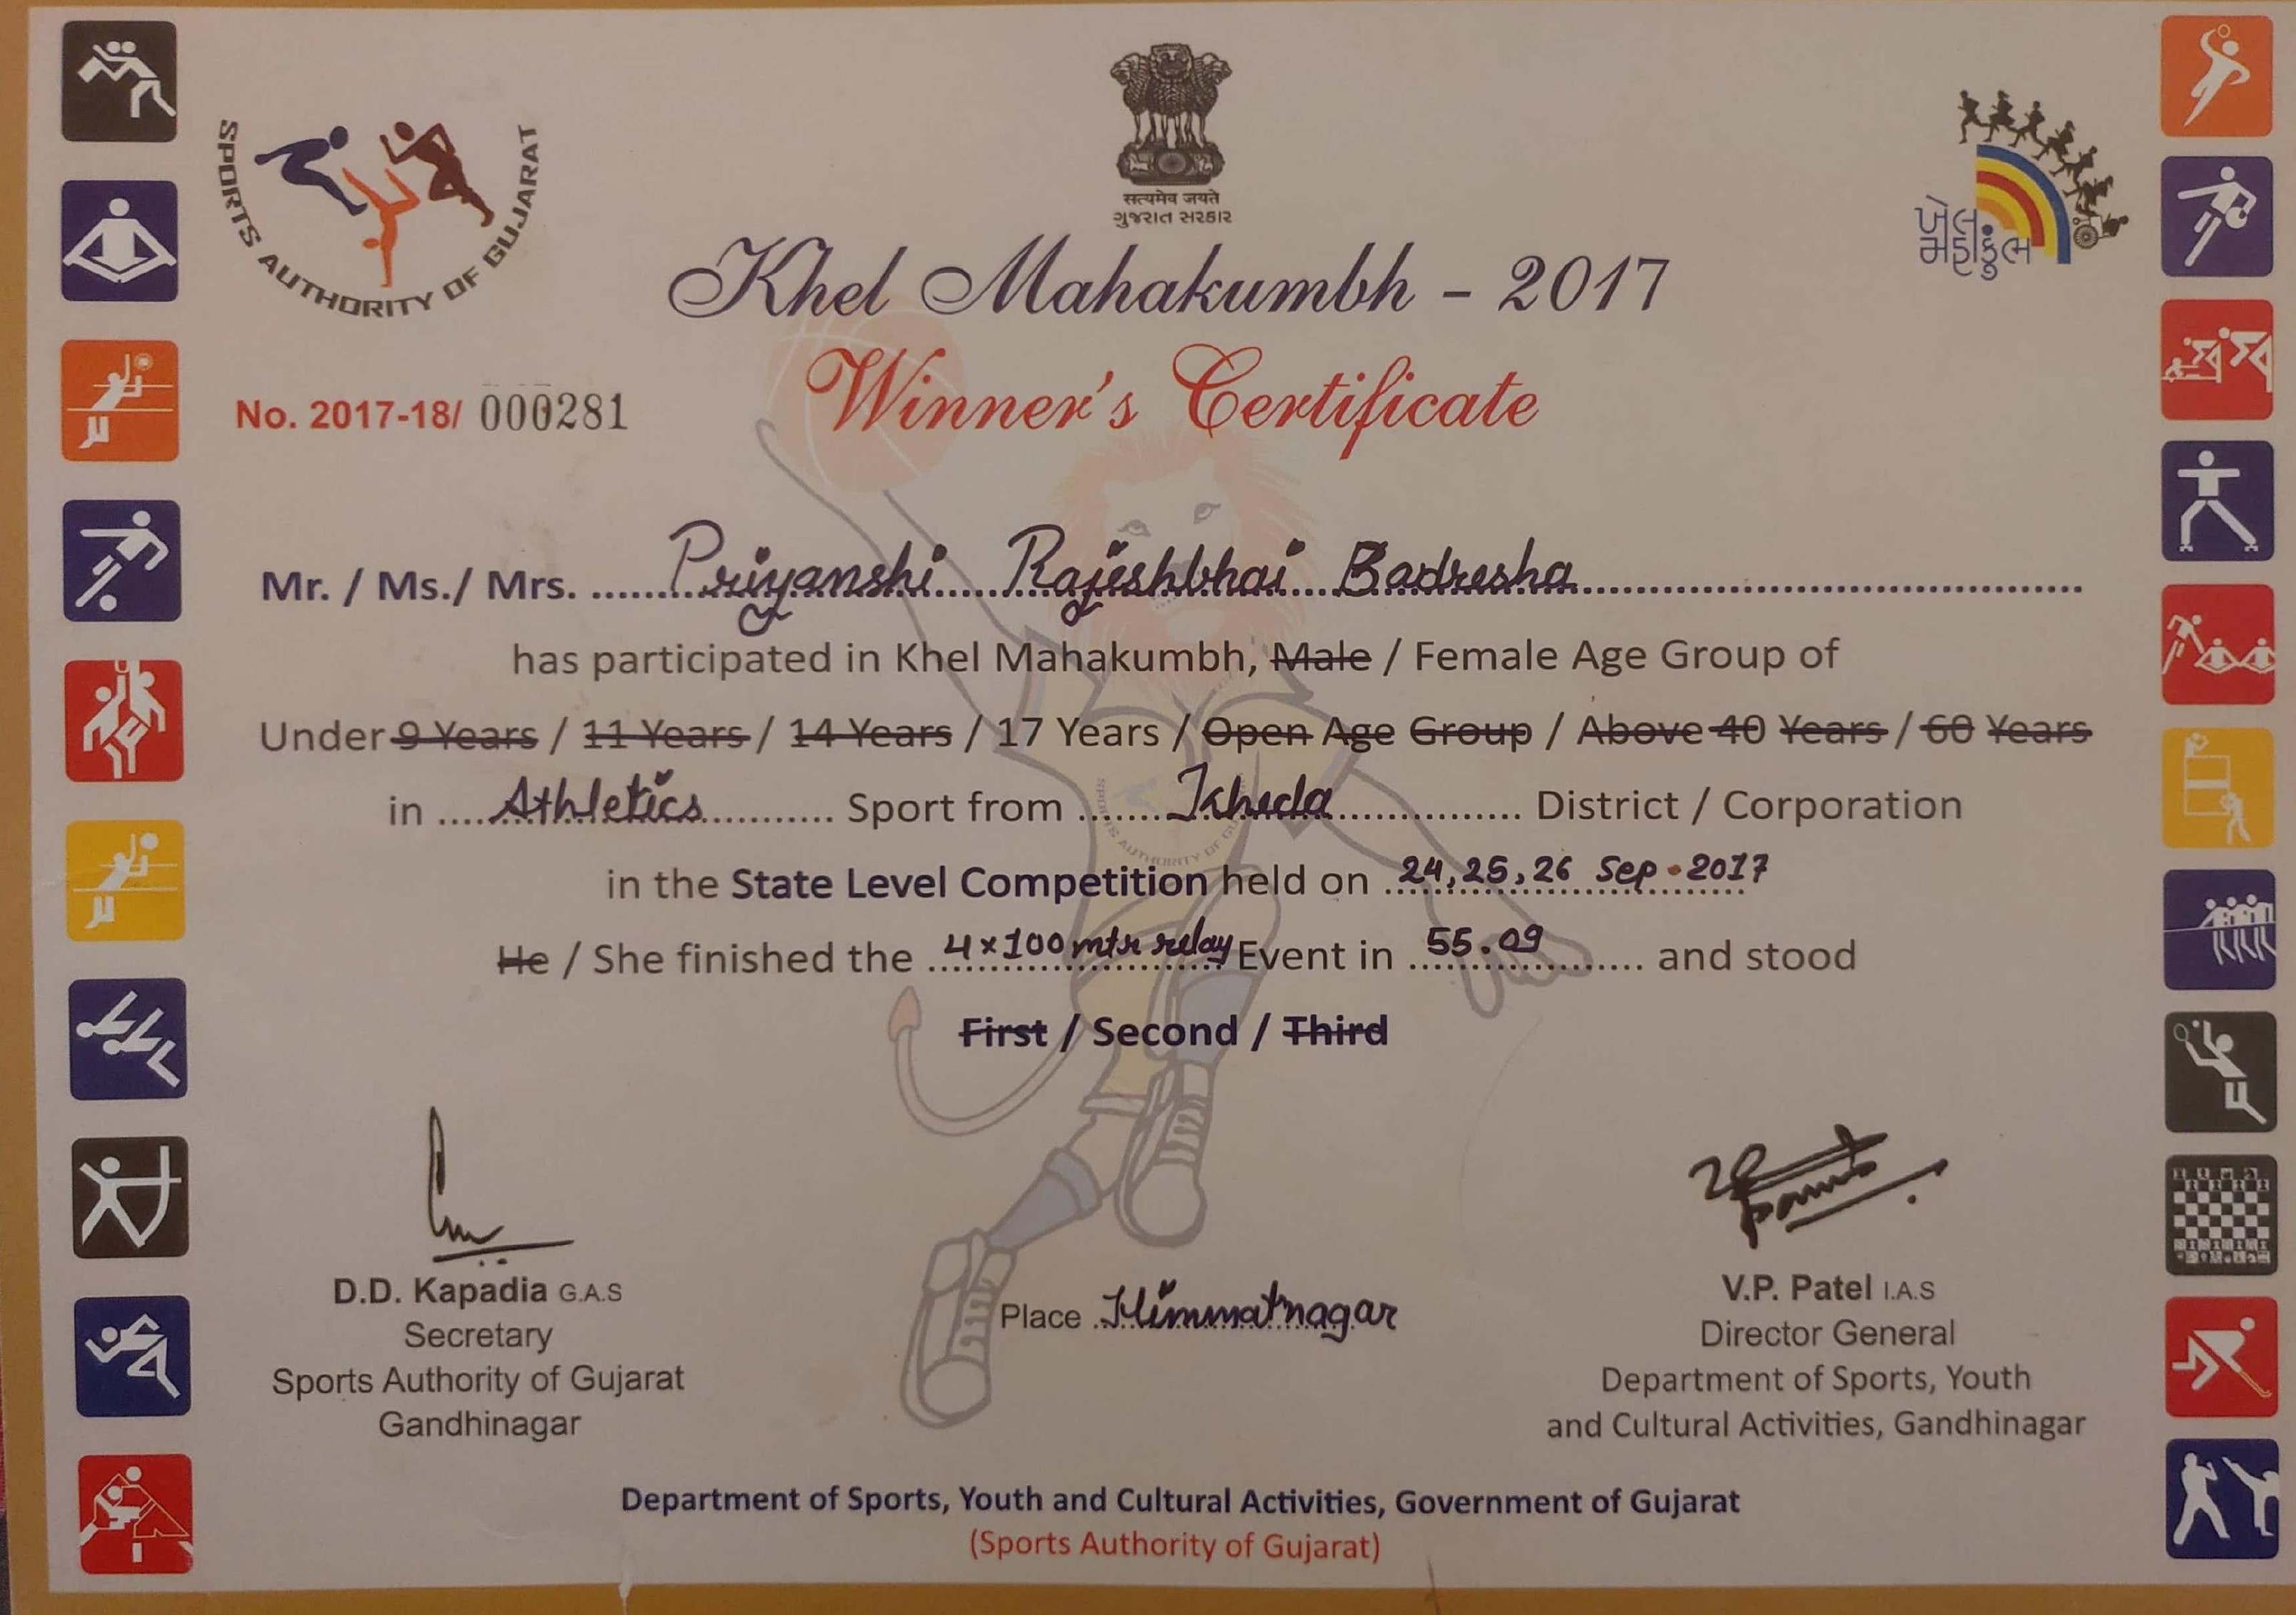 SPORTS AUTHORITY OF GUJARAT
सत्यमेव जयते
ગુજરાત સરકાર
ખેલ
મહાકુંભ
Khel Mahakumbh - 2017
Winner's Certificate
No. 2017-18/ 000281
Mr. / Ms./ Mrs. Priyanshi Rajeshbhai Badresha
has participated in Khel Mahakumbh, Male / Female Age Group of
Under 9 Years / 11 Years / 14 Years / 17 Years / Open Age Group / Above 40 Years / 60 Years
in Athletics Sport from Kheda District / Corporation
in the State Level Competition held on 24,25,26 Sep.2017
He / She finished the 4x100 mtr relay Event in 55.09 and stood
First / Second / Third
D.D. Kapadia G.A.S
Secretary
Sports Authority of Gujarat
Gandhinagar
Place Himmatnagar
V.P. Patel I.A.S
Director General
Department of Sports, Youth
and Cultural Activities, Gandhinagar
Department of Sports, Youth and Cultural Activities, Government of Gujarat
(Sports Authority of Gujarat)